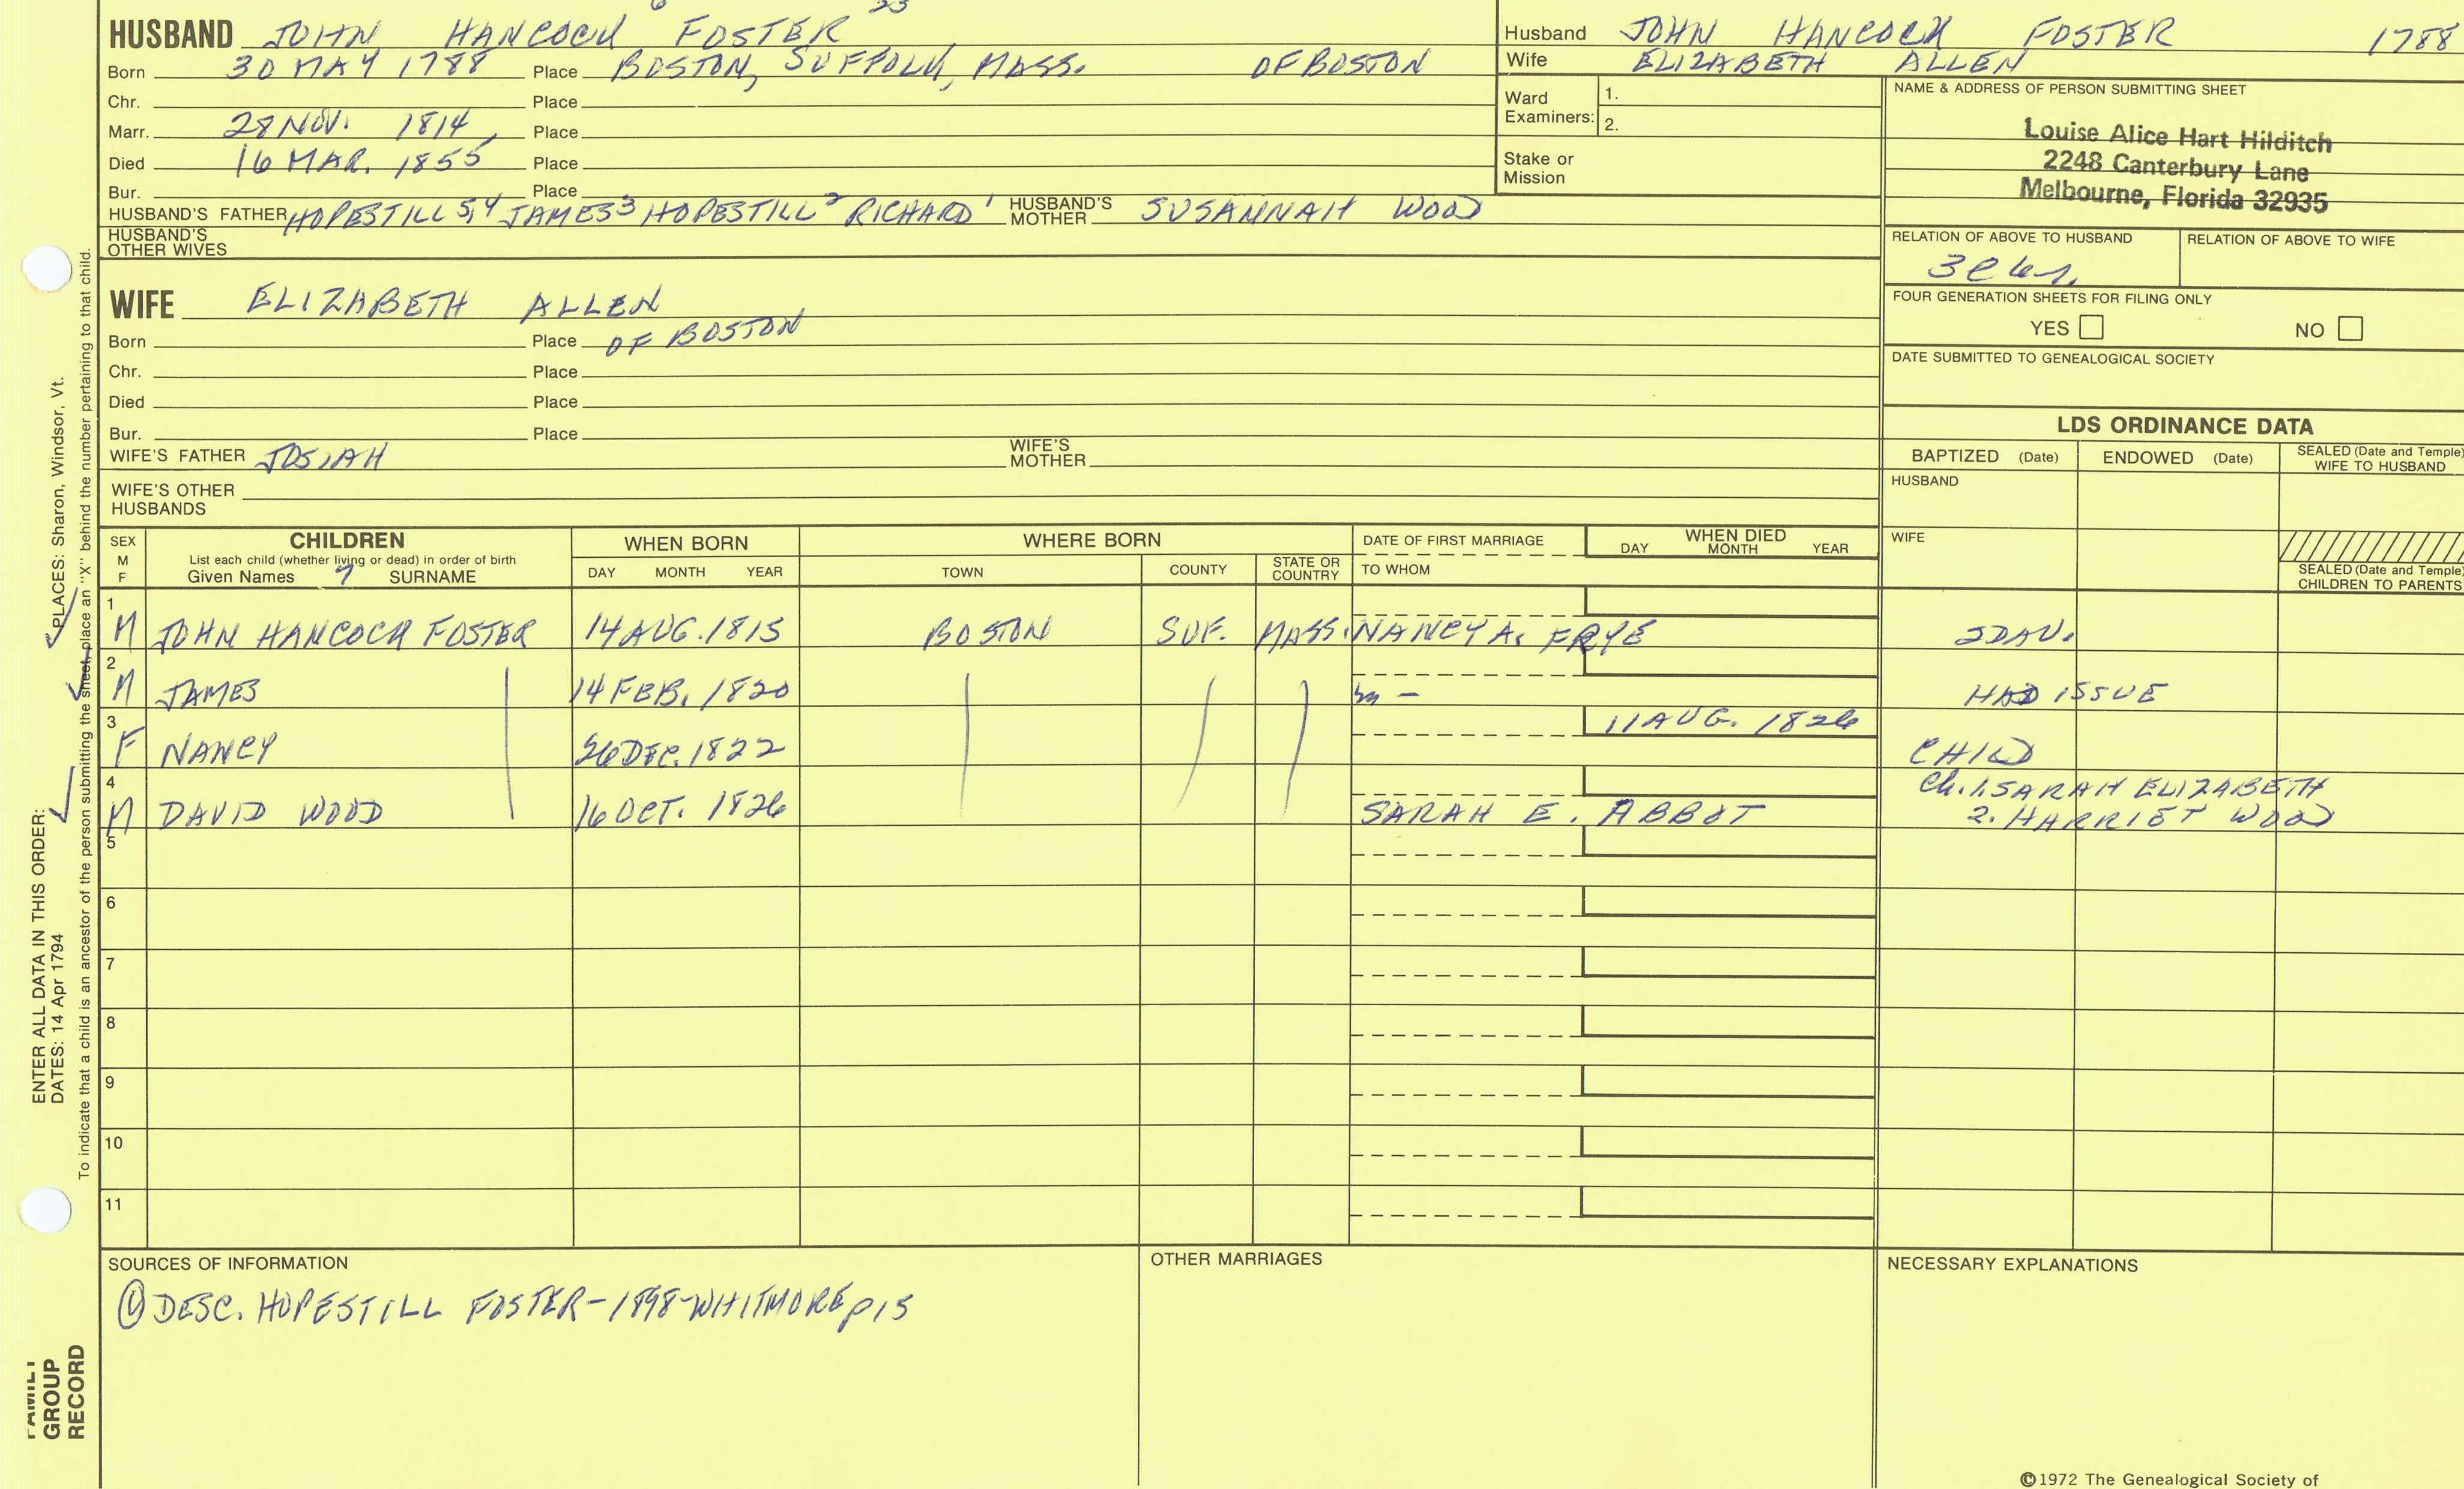 HUSBAND JOHN HANCOCK FOSTER
6 23
Born 30 MAY 1788 Place BOSTON, SUFFOLK, MASS. OF BOSTON
Chr. Place
Marr. 28 NOV. 1814, Place
Died 16 MAR. 1855 Place
Bur. Place
HUSBAND'S FATHER HOPESTILL 5,4 JAMES 3 HOPESTILL 2 RICHARD 1 HUSBAND'S MOTHER SUSANNAH WOOD
HUSBAND'S OTHER WIVES
Husband JOHN HANCOCK FOSTER 1788
Wife ELIZABETH ALLEN
Ward Examiners: 1.
2.
Stake or Mission
NAME & ADDRESS OF PERSON SUBMITTING SHEET
Louise Alice Hart Hilditch
2248 Canterbury Lane
Melbourne, Florida 32935
RELATION OF ABOVE TO HUSBAND RELATION OF ABOVE TO WIFE
FOUR GENERATION SHEETS FOR FILING ONLY
YES NO
DATE SUBMITTED TO GENEALOGICAL SOCIETY
WIFE ELIZABETH ALLEN
Born Place OF BOSTON
Chr. Place
Died Place
Bur. Place
WIFE'S FATHER JOSIAH WIFE'S MOTHER
WIFE'S OTHER HUSBANDS
LDS ORDINANCE DATA
BAPTIZED (Date) ENDOWED (Date) SEALED (Date and Temple) WIFE TO HUSBAND
HUSBAND
WIFE
SEALED (Date and Temple) CHILDREN TO PARENTS
SEX M F CHILDREN WHEN BORN WHERE BORN DATE OF FIRST MARRIAGE WHEN DIED
List each child (whether living or dead) in order of birth
Given Names 7 SURNAME DAY MONTH YEAR TOWN COUNTY STATE OR COUNTRY TO WHOM DAY MONTH YEAR
1 M JOHN HANCOCK FOSTER 14 AUG. 1815 BOSTON SUF. MASS. NANCY A. FRYE 5 DAU.
2 M JAMES 14 FEB. 1820 m - HAD ISSUE
3 F NANCY 26 DEC. 1822 11 AUG. 1826 CHILD
4 M DAVID WOOD 16 OCT. 1826 SARAH E. ABBOT Ch. 1. SARAH ELIZABETH
2. HARRIET WOOD
5
6
7
8
9
10
11
SOURCES OF INFORMATION
① DESC. HOPESTILL FOSTER-1898-WHITMORE p15
OTHER MARRIAGES
NECESSARY EXPLANATIONS
©1972 The Genealogical Society of
ENTER ALL DATA IN THIS ORDER:
DATES: 14 Apr 1794 PLACES: Sharon, Windsor, Vt.
To indicate that a child is an ancestor of the person submitting the sheet, place an "X" behind the number pertaining to that child.
FAMILY
GROUP
RECORD